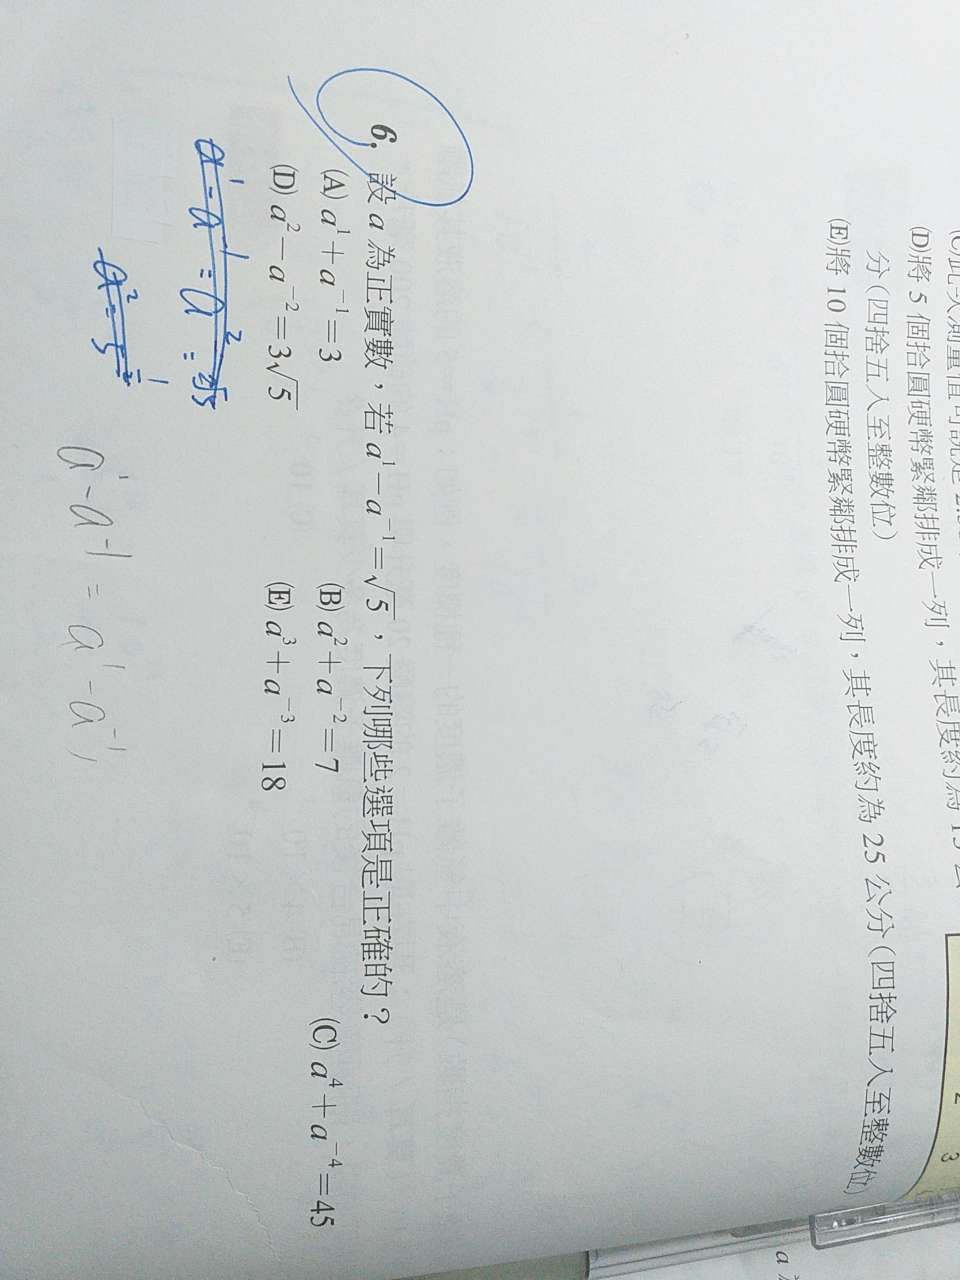 (D)將 5 個拾圓硬幣緊鄰排成一列，其長度約為 15 公
分(四捨五入至整數位)
(E)將 10 個拾圓硬幣緊鄰排成一列，其長度約為 25 公分(四捨五入至整數位)
6. 設 a 為正實數，若 a¹－a⁻¹＝√5，下列哪些選項是正確的？
(A) a¹＋a⁻¹＝3 (B) a²＋a⁻²＝7 (C) a⁴＋a⁻⁴＝45
(D) a²－a⁻²＝3√5 (E) a³＋a⁻³＝18
a¹-a⁻¹=a¹-a⁻¹
2
3